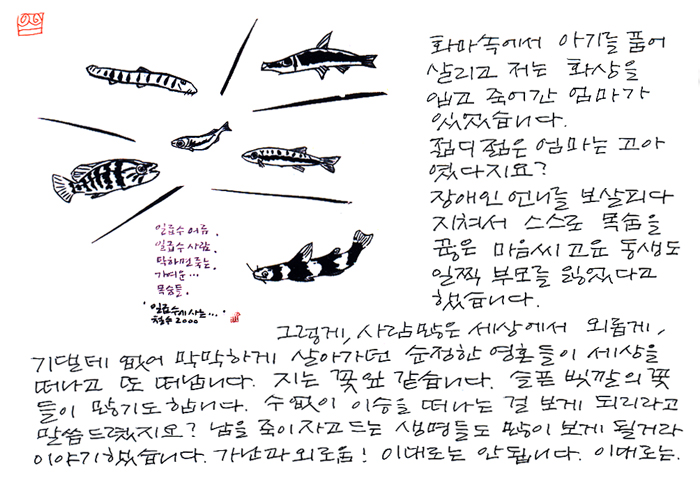 화마속에서 아기를 품어
살리고 저는 화상을
입고 죽어간 엄마가
있었습니다.
젊디 젊은 엄마는 고아
였다지요?
장애인 언니를 보살피다
지쳐서 스스로 목숨을
끊은 마음씨 고운 동생도
일찍 부모를 잃었다고
했습니다.
일급수 어류.
일급수 사람.
탁하면 죽는.
가여운...
목숨들.
'일급수에 사는...'
철수 2000
그렇게, 사람 많은 세상에서 외롭게,
기댈데 없어 막막하게 살아가던 순정한 영혼들이 세상을
떠나고 또 떠납니다. 지는 꽃잎 같습니다. 슬픈 빛깔의 꽃
들이 많기도 합니다. 수없이 이승을 떠나는 걸 보게 되리라고
말씀드렸지요? 남을 죽이자고 드는 생명들도 많이 보게 될거라
이야기했습니다. 가난과 외로움! 이대로는 안됩니다. 이대로는.